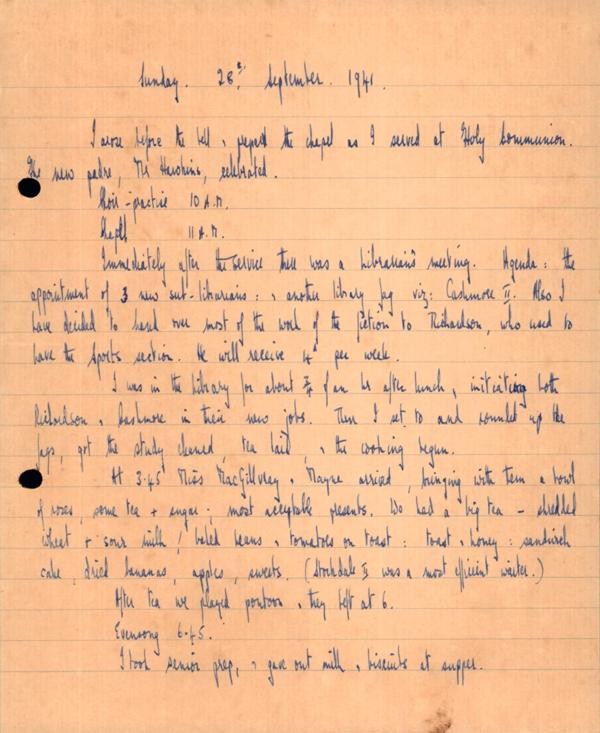 Sunday. 28th September. 1941.
I arose before the bell & prepared the chapel as I served at Holy Communion.
The new padre, Mr Hawkins, celebrated.
Choir-practice 10 A.M.
Chapel 11 A.M.
Immediately after the service there was a Librarians meeting. Agenda: the
appointment of 3 new sub-librarians: & another library fag viz: Cashmore II. Also I
have decided to hand over most of the work of the fiction to Richardson, who used to
have the Sports section. He will receive 4d per week.
I was in the Library for about ¾ of an hr after lunch, initiating both
Richardson & Cashmore in their new jobs. Then I set to and rounded up the
fags, got the study cleaned, tea laid, & the cooking begun.
At 3.45 Miss MacGillvray & Mayne arrived, bringing with them a bowl
of roses, some tea + sugar; most acceptable presents. We had a big tea – shredded
wheat + sour milk / baked beans & tomatoes on toast: toast & honey: sandwich
cake, dried bananas, apples, sweets. (Stockdale II was a most efficient waiter.)
After tea we played pontoon & they left at 6.
Evensong 6.45.
I took senior prep, & gave out milk & biscuits at supper.